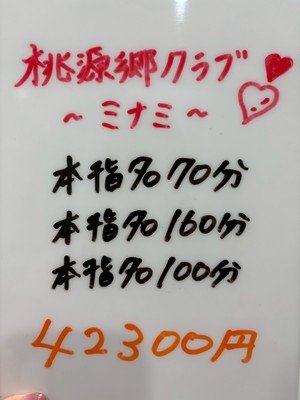 桃源郷クラブ
~ミナミ~
本指名70分
本指名160分
本指名100分
42300円